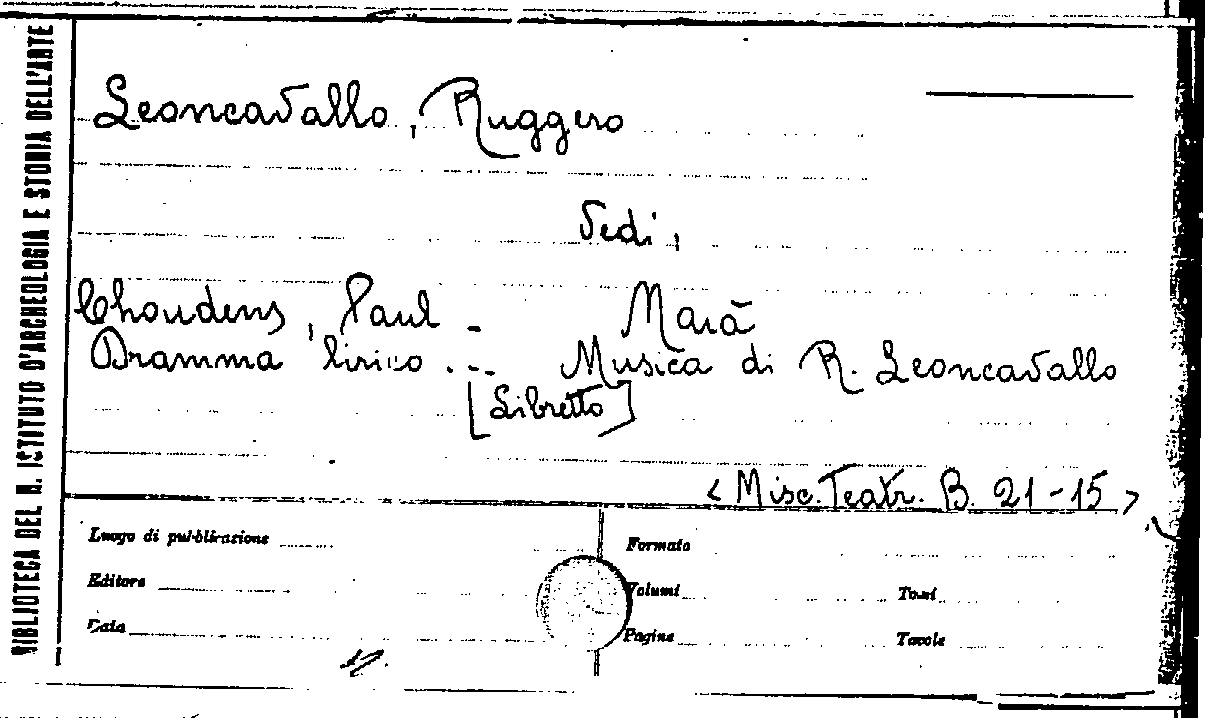 BIBLIOTECA DEL R. ISTITUTO D'ARCHEOLOGIA E STORIA DELL'ARTE
Leoncavallo, Ruggero
Vedi,
Choudens, Paul - Maià
Dramma lirico ... Musica di R. Leoncavallo
[Libretto]
<Misc. Teatr. B. 21-15>
Luogo di pubblicazione
Formato
Editore
Volumi
Tomi
Data
Pagine
Tavole